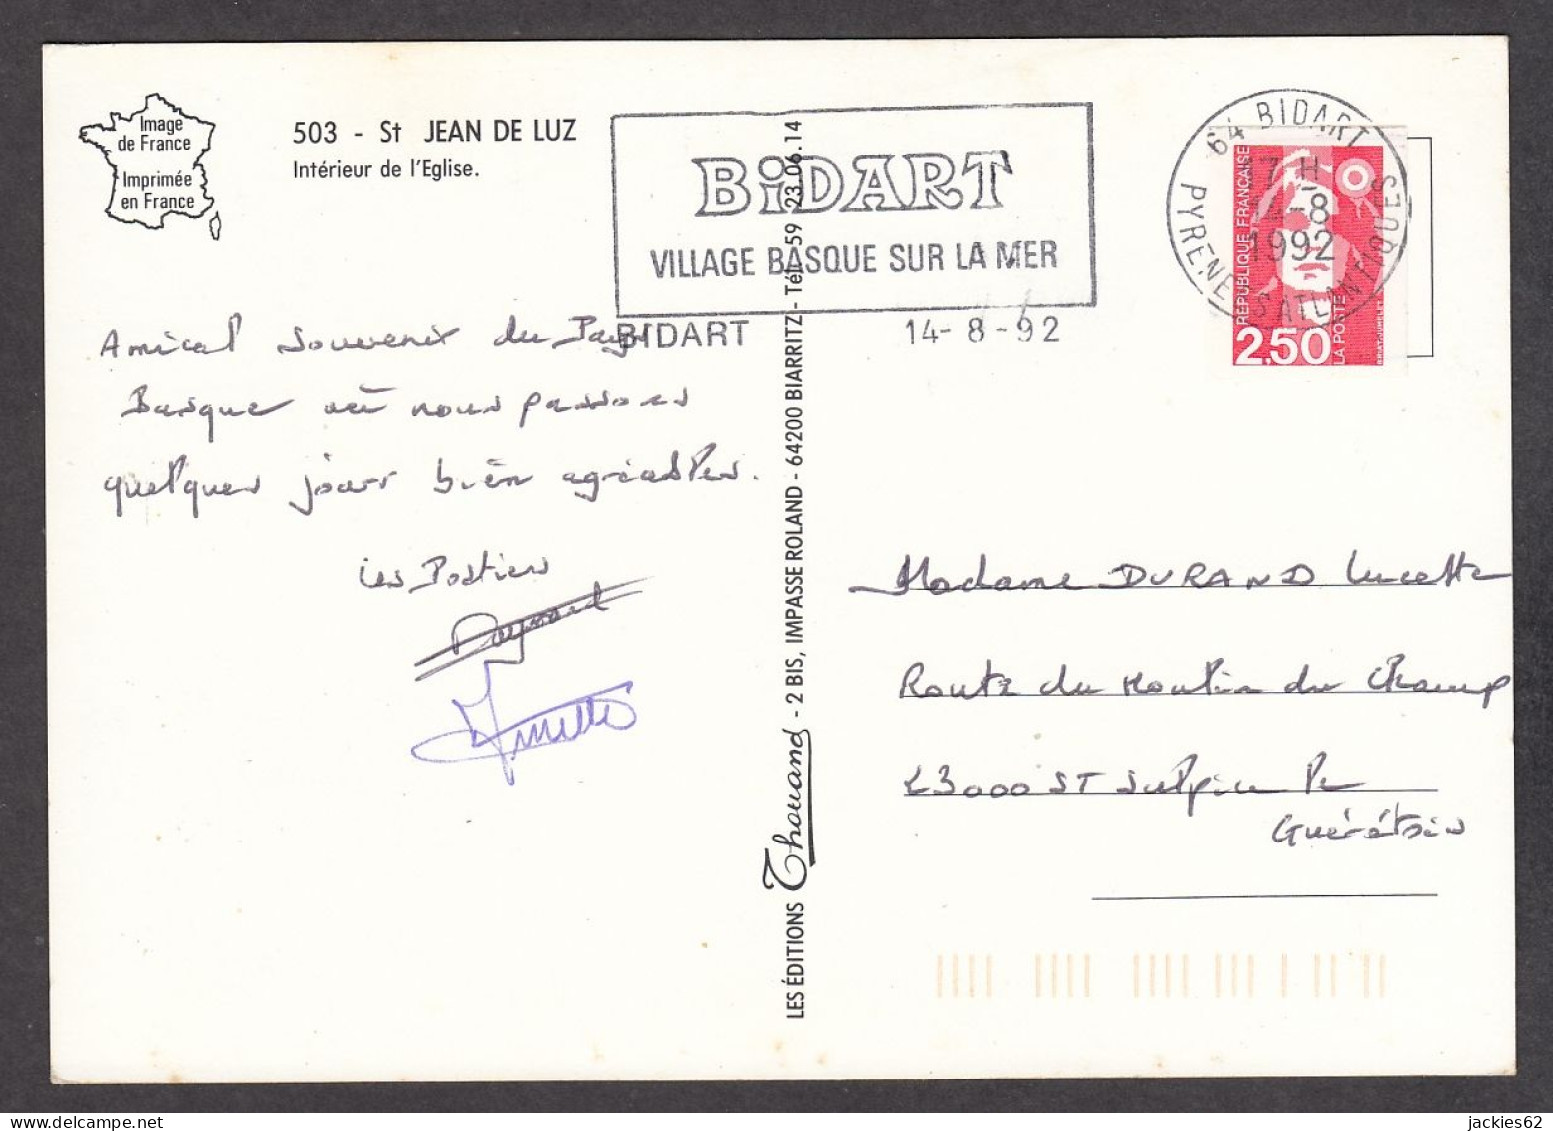 Image
de France
Imprimée
en France
503 - St JEAN DE LUZ
Intérieur de l'Eglise.
BiDART
VILLAGE BASQUE SUR LA MER
BIDART 14-8-92
64 BIDART
17 H
14-8
1992
PYRENEES ATLANTIQUES
RÉPUBLIQUE FRANÇAISE
2,50
LA POSTE
Amical souvenir du Pays
Basque où nous passons
quelques jours bien agréables.
Les Postiers
Raymond
LES ÉDITIONS Thouand - 2 BIS, IMPASSE ROLAND - 64200 BIARRITZ - Tél. 59 23.06.14
Madame DURAND Lucette
Route du Moulin du Champ
23000 ST Sulpice le
Guérétois
jackies62